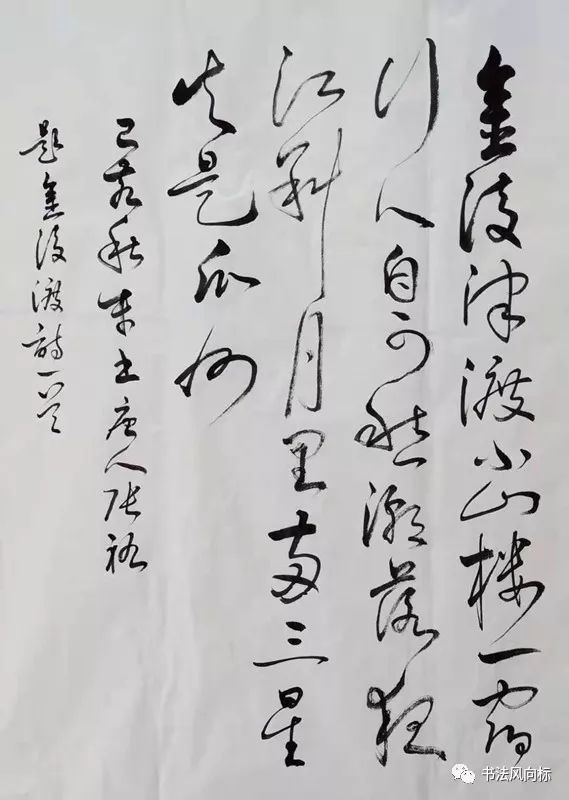 金陵津渡小山楼一宿
行人自可愁潮落夜
江斜月里两三星
火是瓜州
己亥秋书唐人张祜
题金陵渡诗一首
书法风向标